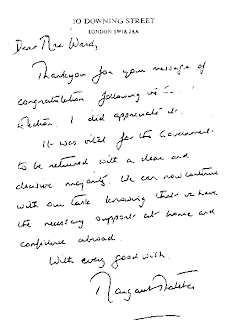 10 DOWNING STREET
LONDON SW1A 2AA
Dear Mrs Ward,
Thank you for your message of
congratulation following
Election. I did appreciate it.
It was vital for the Government
to be returned with a clear and
decisive majority. We can now continue
with our task knowing that we have
the necessary support at home and
confidence abroad.
With every good wish.
Margaret Thatcher